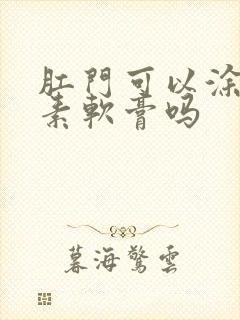 肛門可以涂
素軟膏吗
暮海驚雲